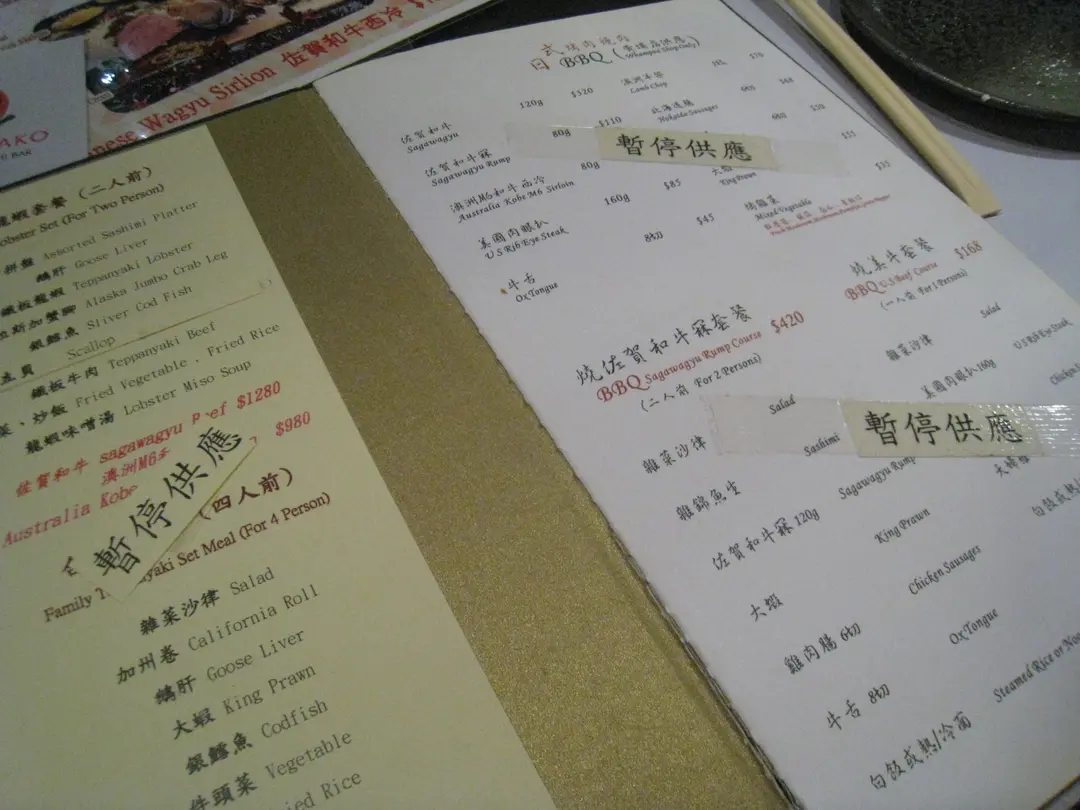 Wagyu Sirlion 佐賀和牛西冷
AKO
BAR
龍蝦套餐（二人前）
Lobster Set (For Two Person)
拼盤 Assorted Sashimi Platter
鵝肝 Goose Liver
鐵板龍蝦 Teppanyaki Lobster
加蟹腳 Alaska Jumbo Crab Leg
銀鱈魚 Sliver Cod Fish
Scallop
鐵板牛肉 Teppanyaki Beef
炒飯 Fried Vegetable , Fried Rice
龍蝦味噌湯 Lobster Miso Soup
佐賀和牛 sagawagyu $1280
澳洲M6
Australia Kobe $980
暫停供應
（四人前）
Family Set Meal (For 4 Person)
雜菜沙律 Salad
加州卷 California Roll
鵝肝 Goose Liver
大蝦 King Prawn
銀鱈魚 Codfish
Vegetable
Rice
日式 烤肉燒肉
BBQ (Whampoa Shop Only)
佐賀和牛 120g $320
Sagawagyu
佐賀和牛冧 80g $110
Sagawagyu Rump
澳洲M6和牛西冷 80g
Australia Kobe M6 Sirloin
美國肉眼扒 160g $85
US Rib Eye Steak
牛舌 8切 $45
Ox Tongue
Lamb Chop
Hokkaido Sausages
暫停供應
大蝦
King Prawn
$35
Mixed Vegetable
燒佐賀和牛冧套餐 $420
BBQ Sagawagyu Rump Course
(二人前 For 2 Persons)
雜菜沙律 Salad
雜錦魚生 Sashimi
佐賀和牛冧 120g Sagawagyu Rump
大蝦 King Prawn
雞肉腸 6切 Chicken Sausages
牛舌 8切 Ox Tongue
白飯或熱/冷麵 Steamed Rice or
燒美牛套餐 $168
BBQ U.S Beef Course
(一人前 For 1 Persons)
雜菜沙律 Salad
美國肉眼扒160g US Rib Eye Steak
暫停供應